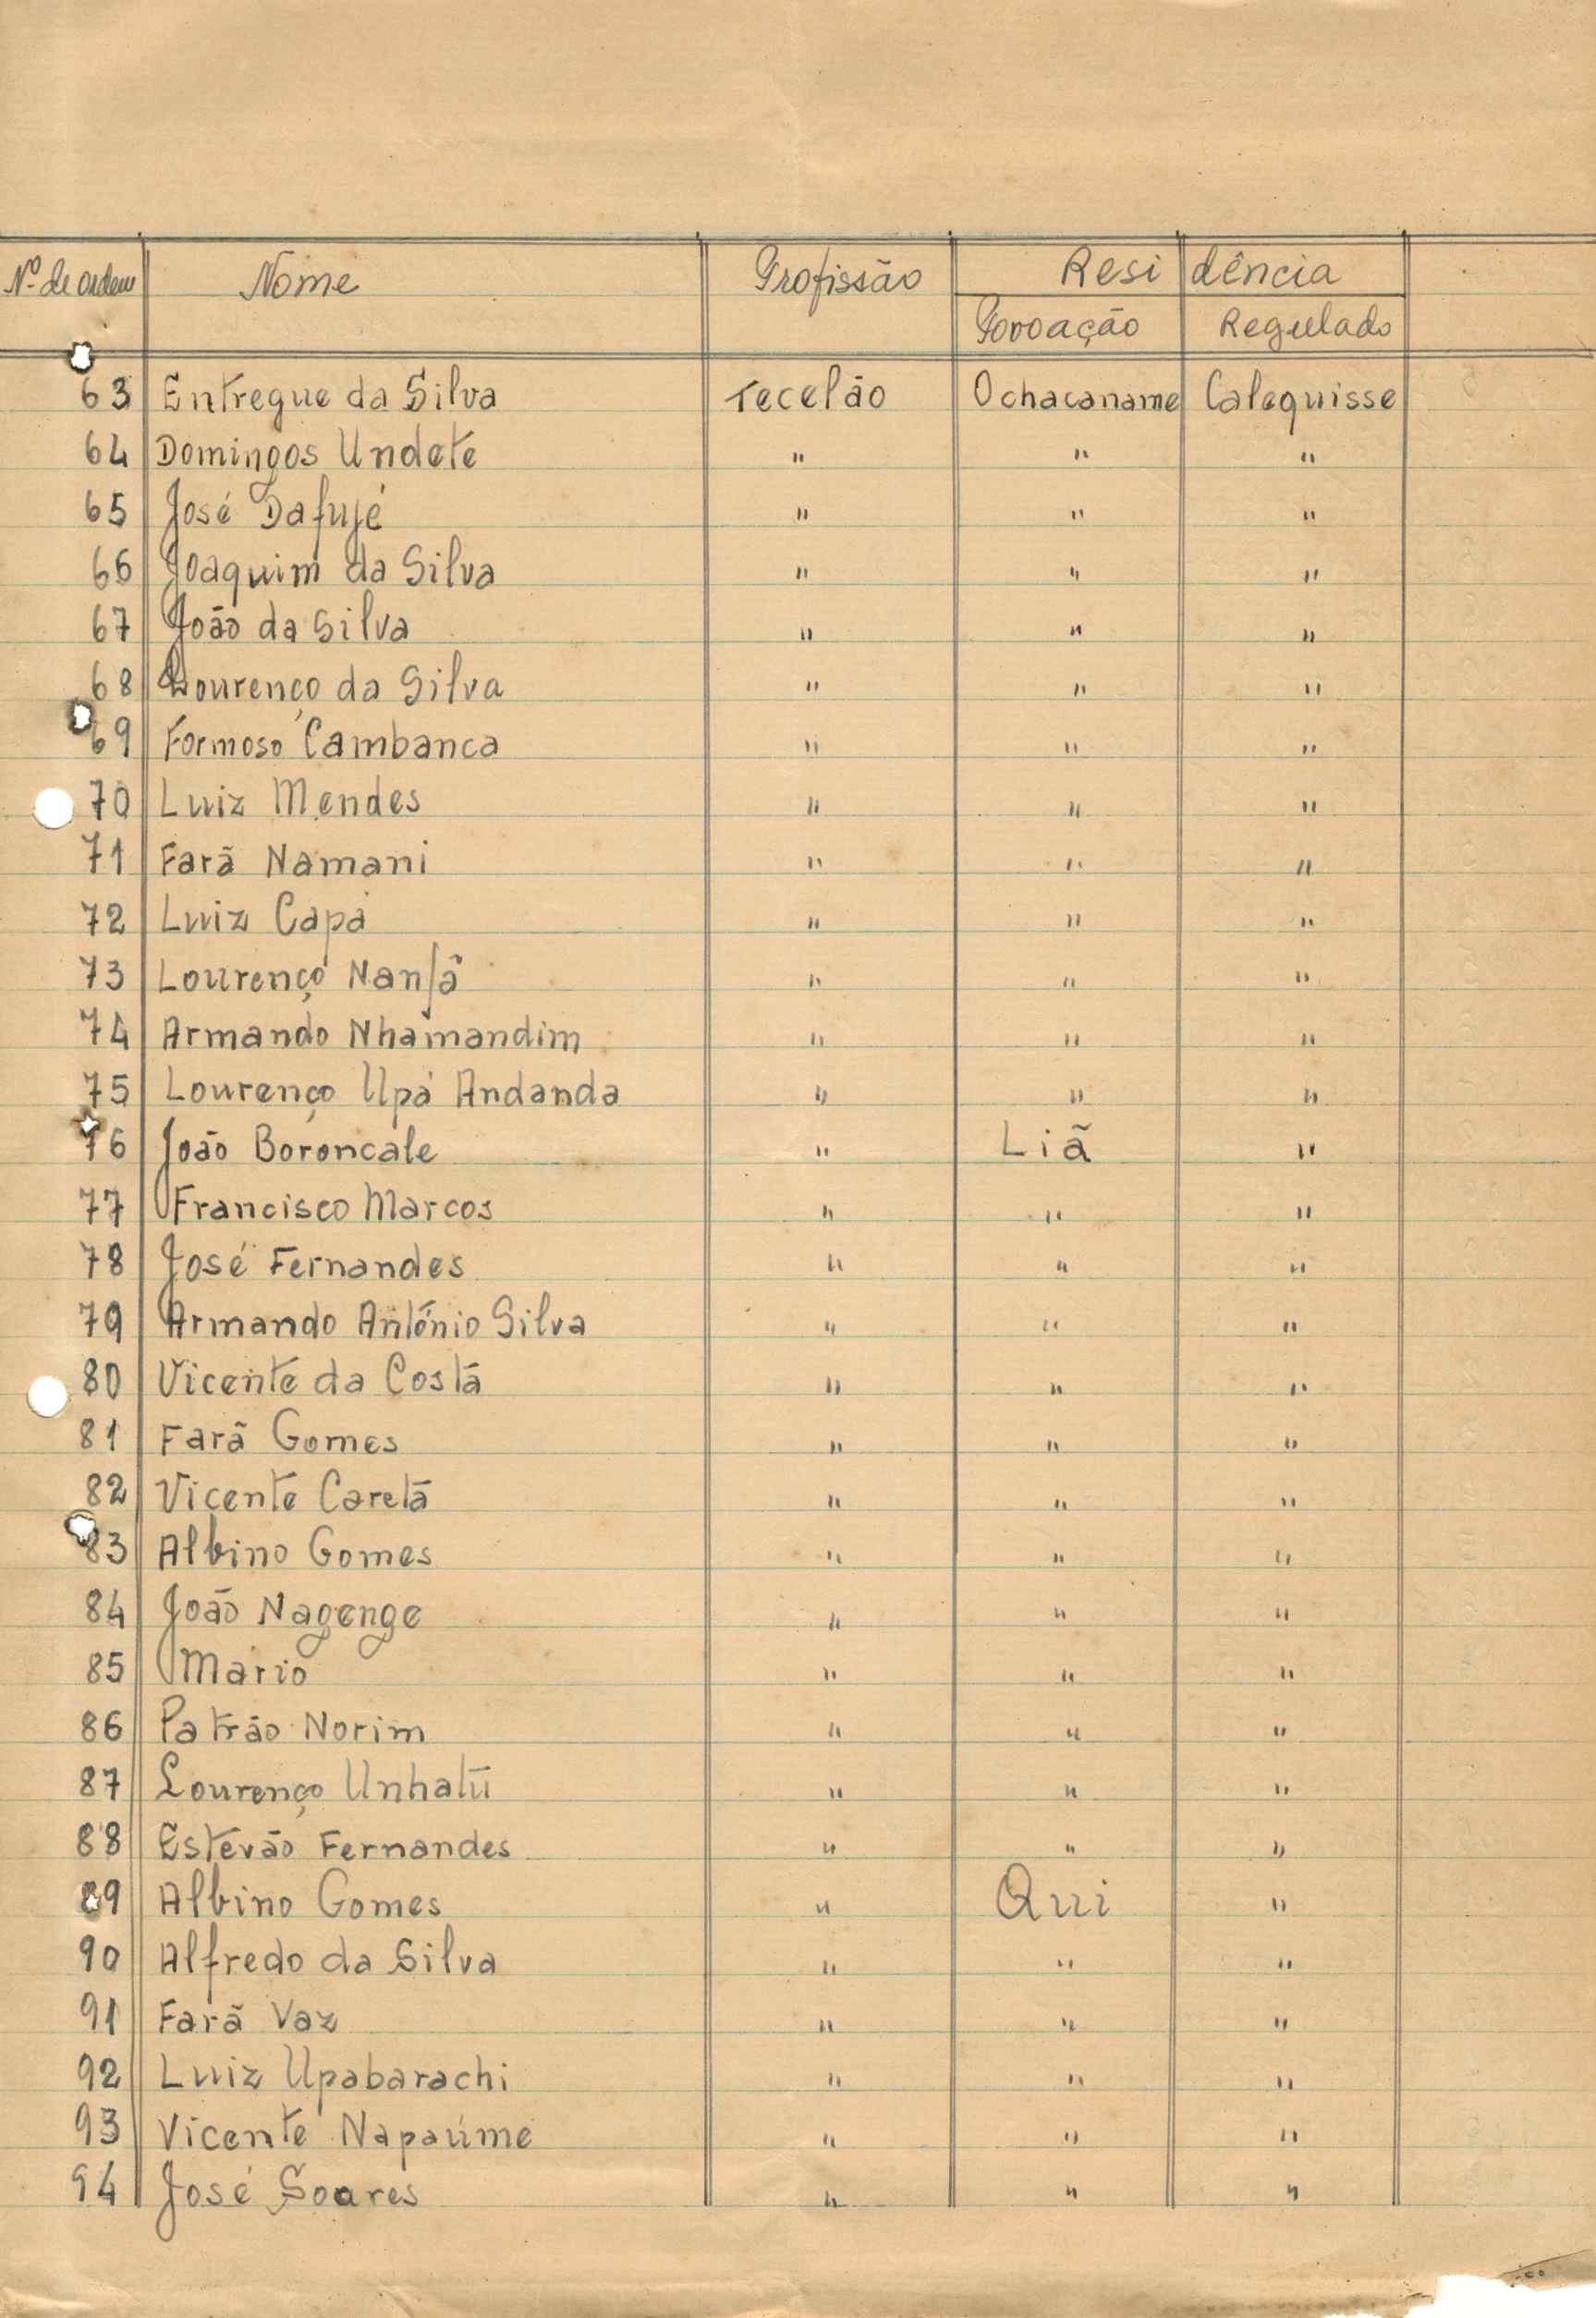 Nº de ordem Nome Profissão Residência
Povoação Regulado
63 Entregue da Silva Tecelão Ochacaname Calequisse
64 Domingos Undete " " "
65 José Dafujé " " "
66 Joaquim da Silva " " "
67 João da Silva " " "
68 Lourenço da Silva " " "
69 Formoso Cambanca " " "
70 Luiz Mendes " " "
71 Farã Namani " " "
72 Luiz Capá " " "
73 Lourenço " " "
74 Armando Nhamandim " " "
75 Lourenço Upá Andanda " " "
76 João Boroncale " Liã "
77 Francisco Marcos " " "
78 José Fernandes " " "
79 Armando António Silva " " "
80 Vicente da Costa " " "
81 Farã Gomes " " "
82 Vicente Caretã " " "
83 Albino Gomes " " "
84 João Nagenge " " "
85 Mario " " "
86 Patrão Norim " " "
87 Lourenço Unhatú " " "
88 Estevão Fernandes " " "
89 Albino Gomes " Qui "
90 Alfredo da Silva " " "
91 Farã Vaz " " "
92 Luiz Upabarachi " " "
93 Vicente Napaúme " " "
94 José Soares " " "